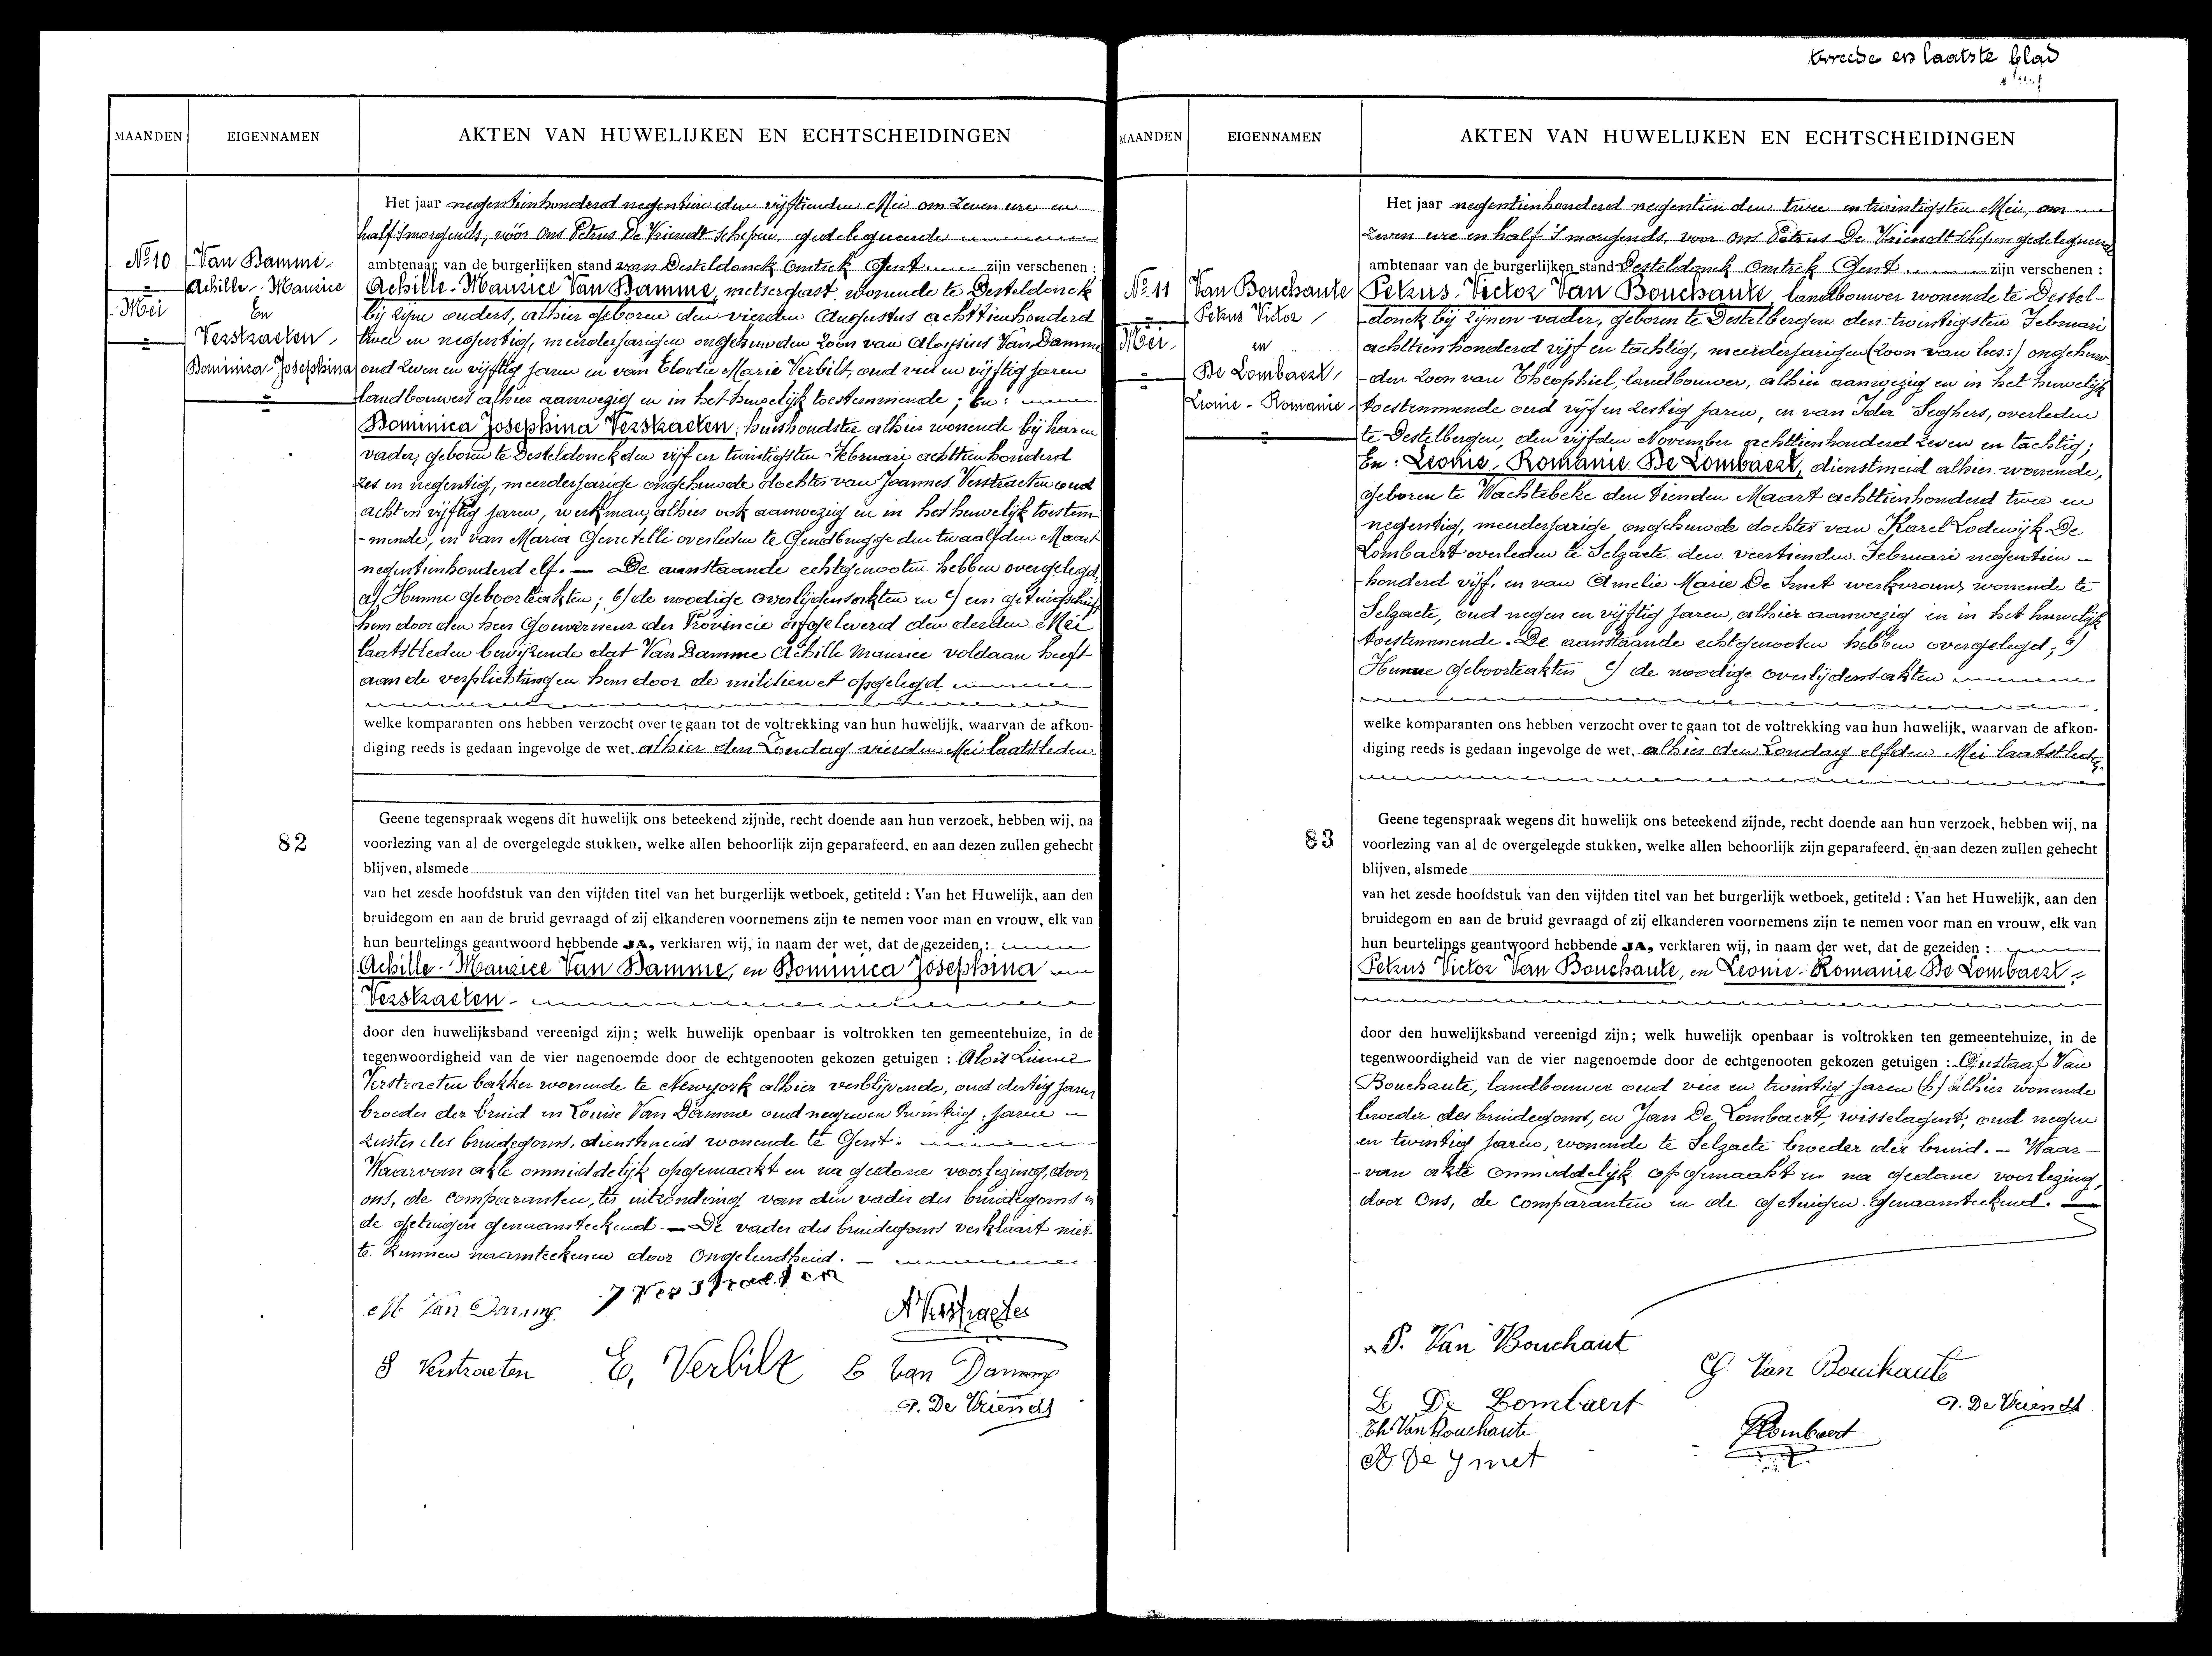 tweede en laatste blad
MAANDEN
EIGENNAMEN
AKTEN VAN HUWELIJKEN EN ECHTSCHEIDINGEN
No 10
Mei
Van Damme
Achille-Maurice
En
Verstraeten
Dominica-Josephina
82
Het jaar negentienhonderd negentien den vijftienden Mei om zeven ure en
half 'smorgends, vóór ons Petrus De Vriendt schepen, gedelegueerde
ambtenaar van de burgerlijken stand van Desteldonck Omtrek Gent zijn verschenen :
Achille-Maurice Van Damme, metsergast wonende te Desteldonck
bij zijne ouders, alhier geboren den vierden Augustus achttienhonderd
twee en negentig, meerderjarigen ongehuwden zoon van Aloysius Van Damme
oud zeven en vijftig jaren en van Elodie Marie Verbilt, oud vier en vijftig jaren
landbouwers alhier aanwezig en in het huwelijk toestemmende ; En :
Dominica Josephina Verstraeten, huishoudster alhier wonende bij haren
vader, geboren te Desteldonck den vijf en twintigsten Februari achttienhonderd
zes en negentig, meerderjarige ongehuwde dochter van Joannes Verstraeten oud
acht en vijftig jaren, werkman, alhier ook aanwezig en in het huwelijk toestem-
-mende, en van Maria Genetelli overleden te Gendbrugge den twaalfden Maart
negentienhonderd elf. — De aanstaande echtgenooten hebben overgelegd,
a) Hunne geboorteakten ; b) de noodige overlijdensakten en c) een getuigschrift
hem door den heer Gouverneur der Provincie afgeleverd den derden Mei
laatstleden bewijzende dat Van Damme Achille Maurice voldaan heeft
aan de verplichtingen hem door de militiewet opgelegd
welke komparanten ons hebben verzocht over te gaan tot de voltrekking van hun huwelijk, waarvan de afkon-
diging reeds is gedaan ingevolge de wet, alhier den Zondag vierden Mei laatstleden
Geene tegenspraak wegens dit huwelijk ons beteekend zijnde, recht doende aan hun verzoek, hebben wij, na
voorlezing van al de overgelegde stukken, welke allen behoorlijk zijn geparafeerd, en aan dezen zullen gehecht
blijven, alsmede
van het zesde hoofdstuk van den vijfden titel van het burgerlijk wetboek, getiteld : Van het Huwelijk, aan den
bruidegom en aan de bruid gevraagd of zij elkanderen voornemens zijn te nemen voor man en vrouw, elk van
hun beurtelings geantwoord hebbende JA, verklaren wij, in naam der wet, dat de gezeiden :
Achille-Maurice Van Damme, en Dominica Josephina
Verstraeten
door den huwelijksband vereenigd zijn; welk huwelijk openbaar is voltrokken ten gemeentehuize, in de
tegenwoordigheid van de vier nagenoemde door de echtgenooten gekozen getuigen : Aloïs
Verstraeten bakker wonende te Newyork alhier verblijvende, oud dertig jaren
broeder der bruid en Louise Van Damme oud negen en twintig jaren
zuster des bruidegoms, dienstmeid wonende te Gent.
Waarvan akte onmiddelijk opgemaakt en na gedane voorlezing, door
ons, de comparanten, ter uitzondering van den vader des bruidegoms en
de getuigen genaamteekend. — De vader des bruidegoms verklaart niet
te kunnen naamteekenen door Ongeleerdheid. —
Van Damme
J Verstraeten
A Verstraeten
Verstraeten
E, Verbilt
Van Damme
P. De Vriendt
MAANDEN
EIGENNAMEN
AKTEN VAN HUWELIJKEN EN ECHTSCHEIDINGEN
No 11
Mei
Van Bouchaute
Petrus Victor
en
De Lombaert,
Leonie-Romanie
83
Het jaar negentienhonderd negentien den twee en twintigsten Mei, om
zeven ure en half 's morgends, voor ons Petrus De Vriendt schepen gedelegueerde
ambtenaar van de burgerlijken stand Desteldonck Omtrek Gent zijn verschenen :
Petrus-Victor Van Bouchaute, landbouwer wonende te Destel-
-donck bij zijnen vader, geboren te Destelbergen den twintigsten Februari
achttienhonderd vijf en tachtig, meerderjarigen (zoon van lees:) ongehuw-
-den zoon van Theophiel, landbouwer, alhier aanwezig en in het huwelijk
toestemmende oud vijf en zestig jaren, en van Ida Seghers, overleden
te Destelbergen, den vijfden November achttienhonderd zeven en tachtig ;
En : Leonie-Romanie De Lombaert, dienstmeid alhier wonende,
geboren te Wachtebeke den tienden Maart achttienhonderd twee en
negentig, meerderjarige ongehuwde dochter van Karel Lodewijk De
Lombaert overleden te Selzaete den veertienden Februari negentien-
-honderd vijf, en van Amelie Marie De Smet werkvrouw, wonende te
Selzaete, oud negen en vijftig jaren, alhier aanwezig en in het huwelijk
toestemmende. De aanstaande echtgenooten hebben overgelegd ; a)
Hunne geboorteakten c) de noodige overlijdens-akten
welke komparanten ons hebben verzocht over te gaan tot de voltrekking van hun huwelijk, waarvan de afkon-
diging reeds is gedaan ingevolge de wet, alhier den Zondag elfden Mei laatstleden
Geene tegenspraak wegens dit huwelijk ons beteekend zijnde, recht doende aan hun verzoek, hebben wij, na
voorlezing van al de overgelegde stukken, welke allen behoorlijk zijn geparafeerd, en aan dezen zullen gehecht
blijven, alsmede
van het zesde hoofdstuk van den vijfden titel van het burgerlijk wetboek, getiteld : Van het Huwelijk, aan den
bruidegom en aan de bruid gevraagd of zij elkanderen voornemens zijn te nemen voor man en vrouw, elk van
hun beurtelings geantwoord hebbende JA, verklaren wij, in naam der wet, dat de gezeiden :
Petrus Victor Van Bouchaute, en Leonie-Romanie De Lombaert
door den huwelijksband vereenigd zijn; welk huwelijk openbaar is voltrokken ten gemeentehuize, in de
tegenwoordigheid van de vier nagenoemde door de echtgenooten gekozen getuigen : Gustaaf Van
Bouchaute, landbouwer oud vier en twintig jaren (b) alhier wonende
broeder des bruidegoms, en Jan De Lombaert, wisselagent, oud negen
en twintig jaren, wonende te Selzaete broeder der bruid. — Waar-
-van akte onmiddelijk opgemaakt en na gedane voorlezing,
door Ons, de Comparanten en de getuigen genaamteekend. —
P. Van Bouchaut
G Van Bouchaute
L De Lombaert
P. De Vriendt
Th Van Bouchaute
Lombaert
A De Smet